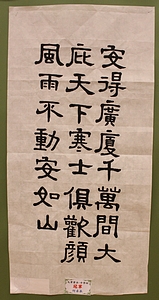 安得廣廈千萬間大
庇天下寒士俱歡顏
風雨不動安如山